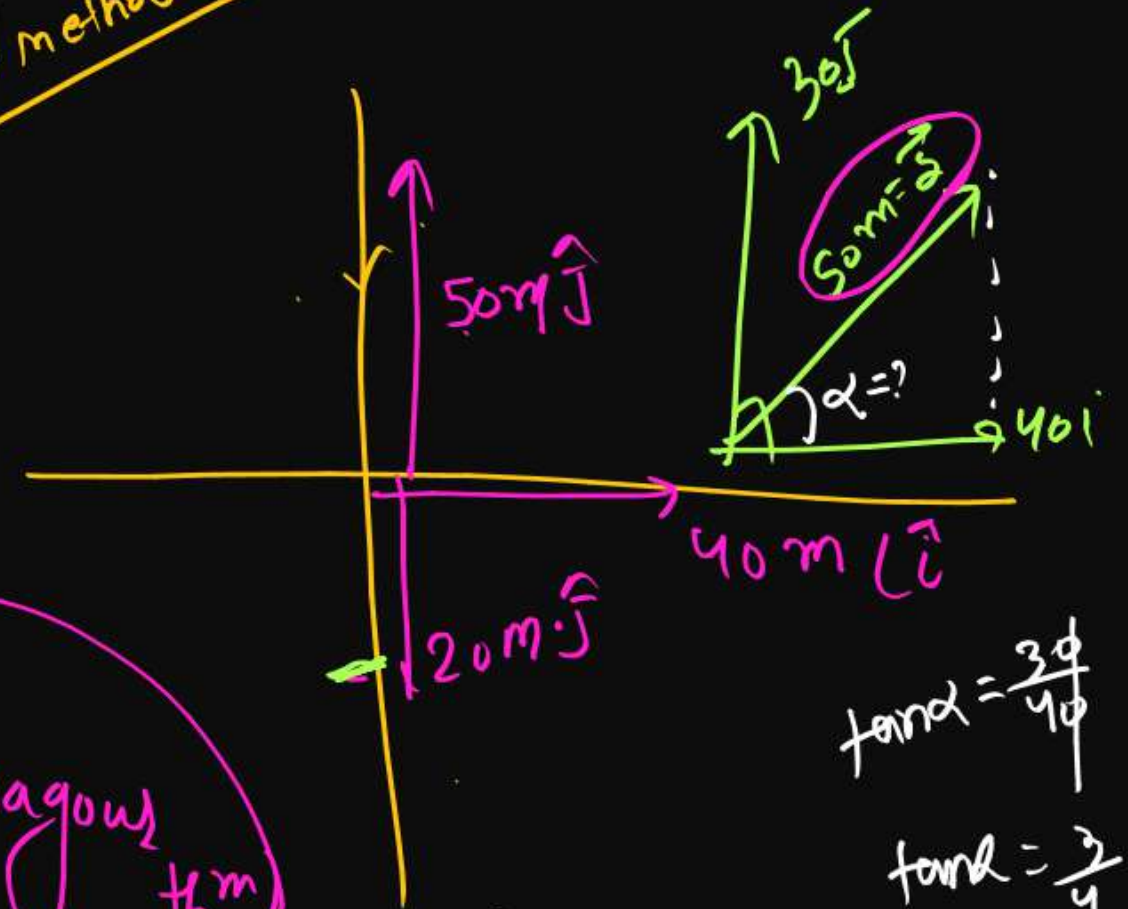 metho
30ĵ
50m = s⃗
50m ĵ
α = ?
40i
40m (î
20m·ĵ
tanα = 30/40
tanα = 3/4
agous
thm